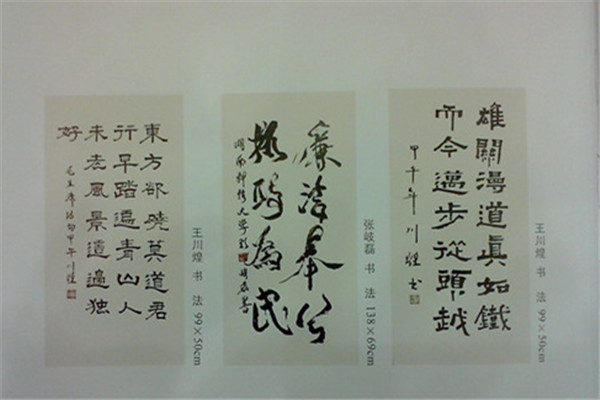 東方欲曉莫道君
行早踏遍青山人
未老風景這邊独
好
毛主席詩句甲午川煌
王川煌 书 法 99×50cm
廉洁奉公
政为民
湖南科技大学
张岐磊 书 法 138×69cm
雄關漫道真如鐵
而今邁步從頭越
甲午年川煌书
王川煌 书 法 99×50cm